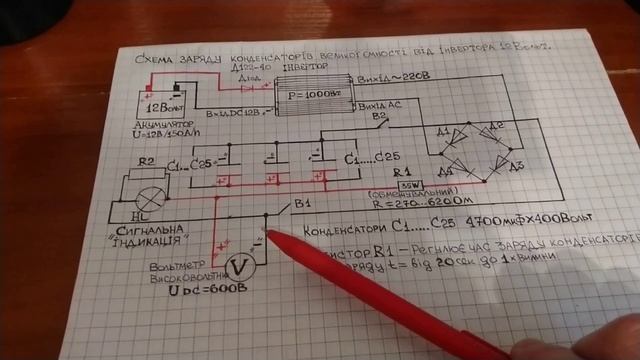 Схема заряду конденсаторів великої ємності від інвертора 12 Вольт.
Д122-40
Діод
інвертор
Вихід ~220В
P=1000Вт
12 Вольт
Вхід DC 12В
Вихід АС
В2
Акумулятор
U=12В/150A/h
Д1
Д2
R2
C1...C25
C1.....C25
R1
35W
Д4
Д3
(обмежувальний)
R=270...620Ом
В1
HL
Сигнальна
"індикація"
Конденсатори C1.....C25 4700мкФ×400Вольт
R1 – Регулює час заряду конденсаторів
t= від 20 сек до 1 хвилини
Вольтметр
Високовольтний
V
U DC=600В